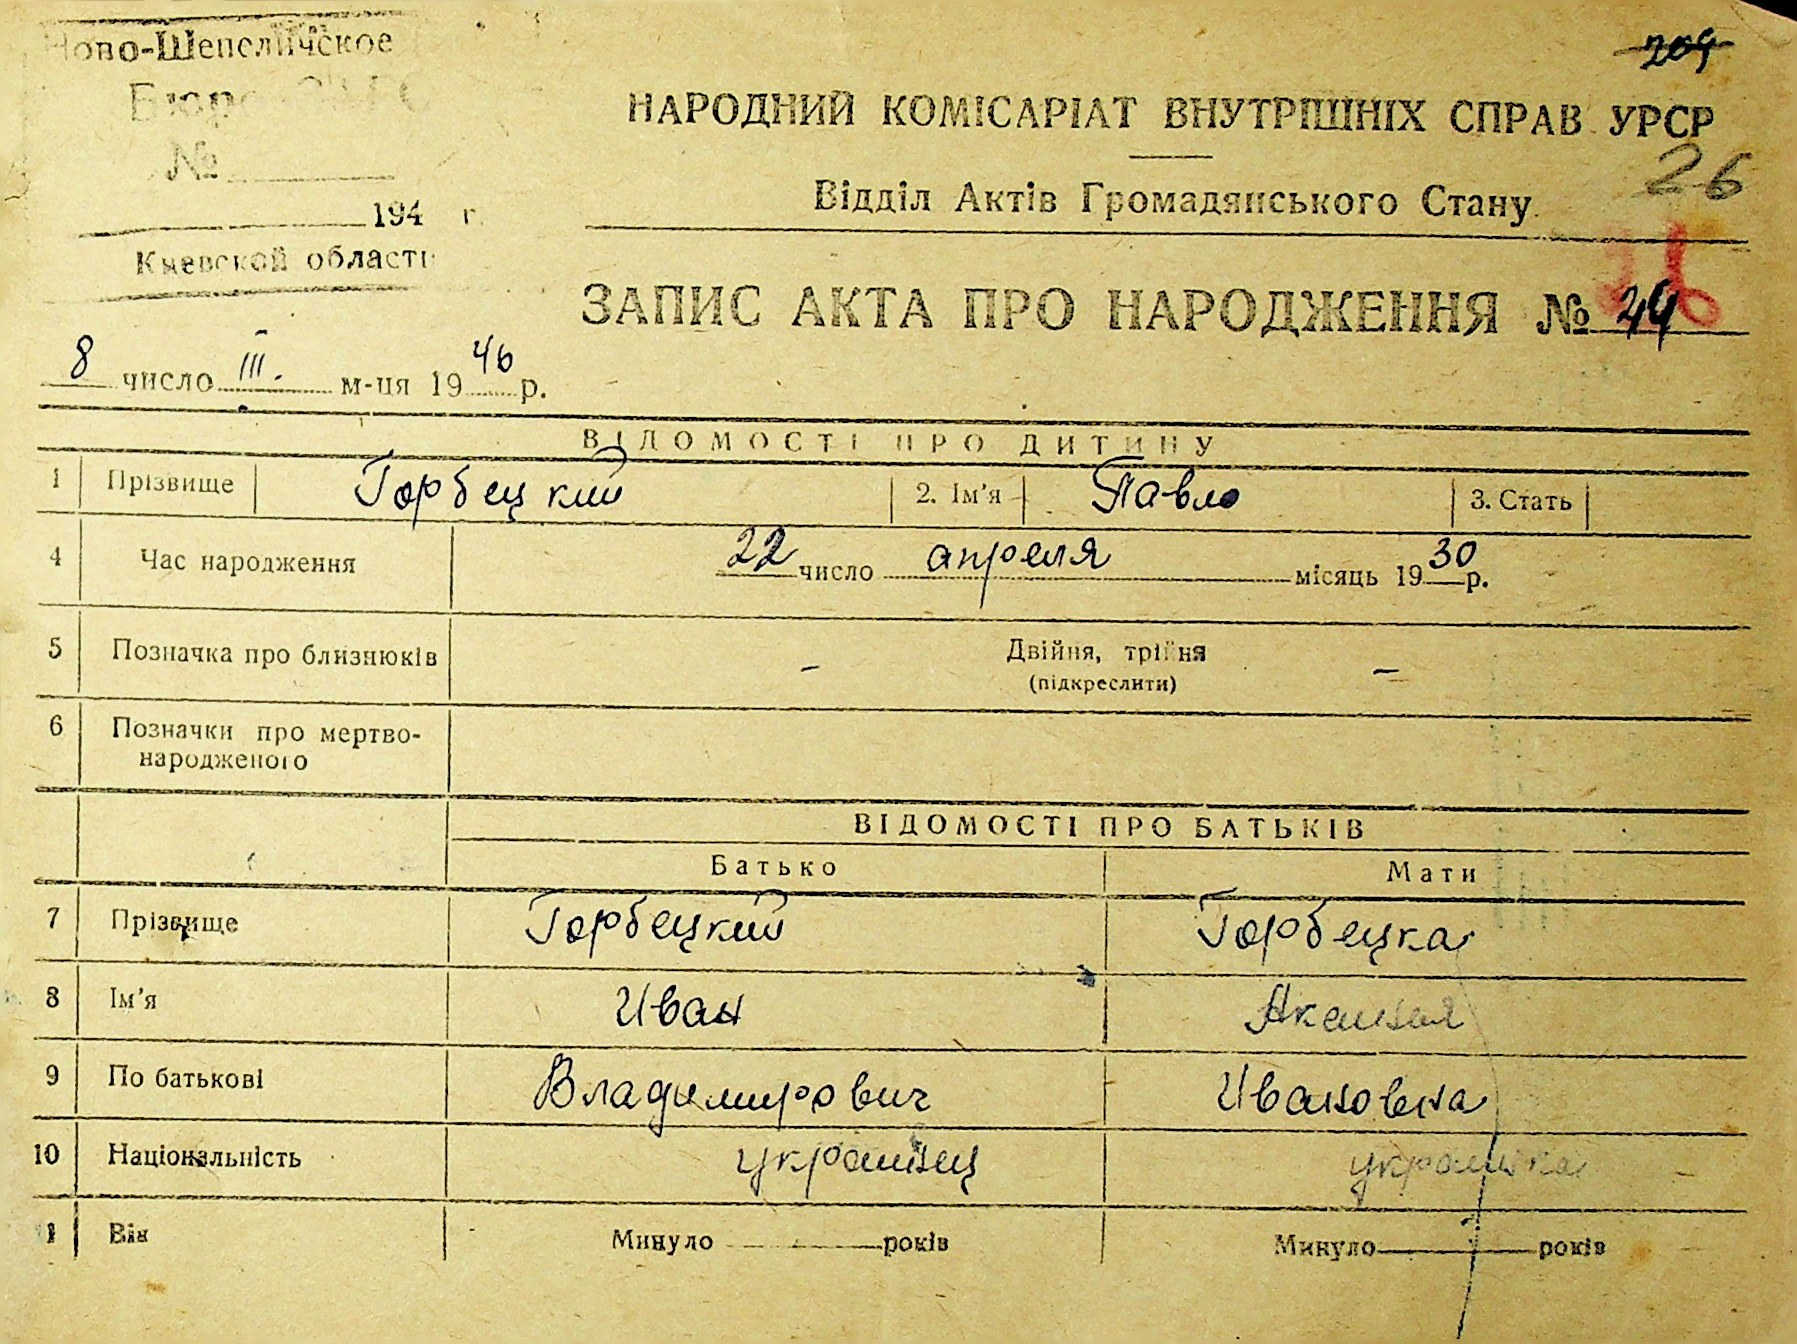 Ново-Шепеличское
Бюро ЗАГС
№
194 г.
Киевской области
209
НАРОДНИЙ КОМІСАРІАТ ВНУТРІШНІХ СПРАВ УРСР
26
Відділ Актів Громадянського Стану
ЗАПИС АКТА ПРО НАРОДЖЕННЯ № 24
8 число III. м-ця 1946 р.
ВІДОМОСТІ ПРО ДИТИНУ
1 Прізвище Горбецкий 2. Ім'я Павло 3. Стать
4 Час народження 22 число апреля місяць 1930 р.
5 Позначка про близнюків - Двійня, трійня -
(підкреслити)
6 Позначки про мертво-
народженого
ВІДОМОСТІ ПРО БАТЬКІВ
Батько Мати
7 Прізвище Горбецкий Горбецка
8 Ім'я Иван
9 По батькові Владимирович Ивановна
10 Національність украинец украинка
1 Вік Минуло років Минуло років